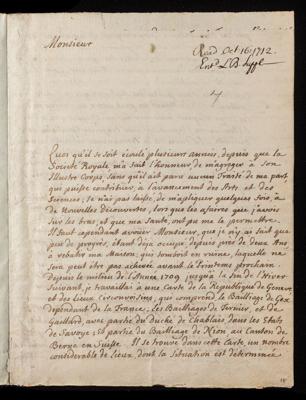 Monsieur
Read Oct. 16. 1712.
Ent.d L.B. Suppl.
Quoi qu'il se soit écoulé plusieurs années, depuis que la
Societé Royale m'a fait l'honneur, de m'agréger à son
Illustre Corps, sans qu'il ait paru aucun Traité de ma part,
qui puisse contribuer à l'avancement des Arts, et des
Sciences; Je n'ai pas laissé, de m'apliquer quelques fois, à
de Nouvelles découvertes, lors que les afaires que j'avois
sur les bras, et que ma Santé, ont pû me le permettre.
Il faut cependant avouer Monsieur, que je n'y ai fait que
peu de progrès, étant déja occupé, depuis près de deux Ans
à rebatir ma Maison, qui tomboit en ruine, laquelle ne
sera peut être pas achevée avant le Printems prochain
depuis le milieu de l'Année 1709 jusqu'à la fin de l'Hiver
suivant, je travaillai à une Carte de la Republique de Geneve
et des Lieux circonvoisins, qui comprend le Bailliage de Gex
dépendant de la France; les Bailliages de Ternier, et de
Gaillard, avec partie du Duché de Chablais, dans les Etats
de Savoye; et partie du Bailliage de Nion au Canton de
Berne en Suisse. Il se trouve dans cette Carte un nombre
considerable de Lieux, dont la Situation est déterminée